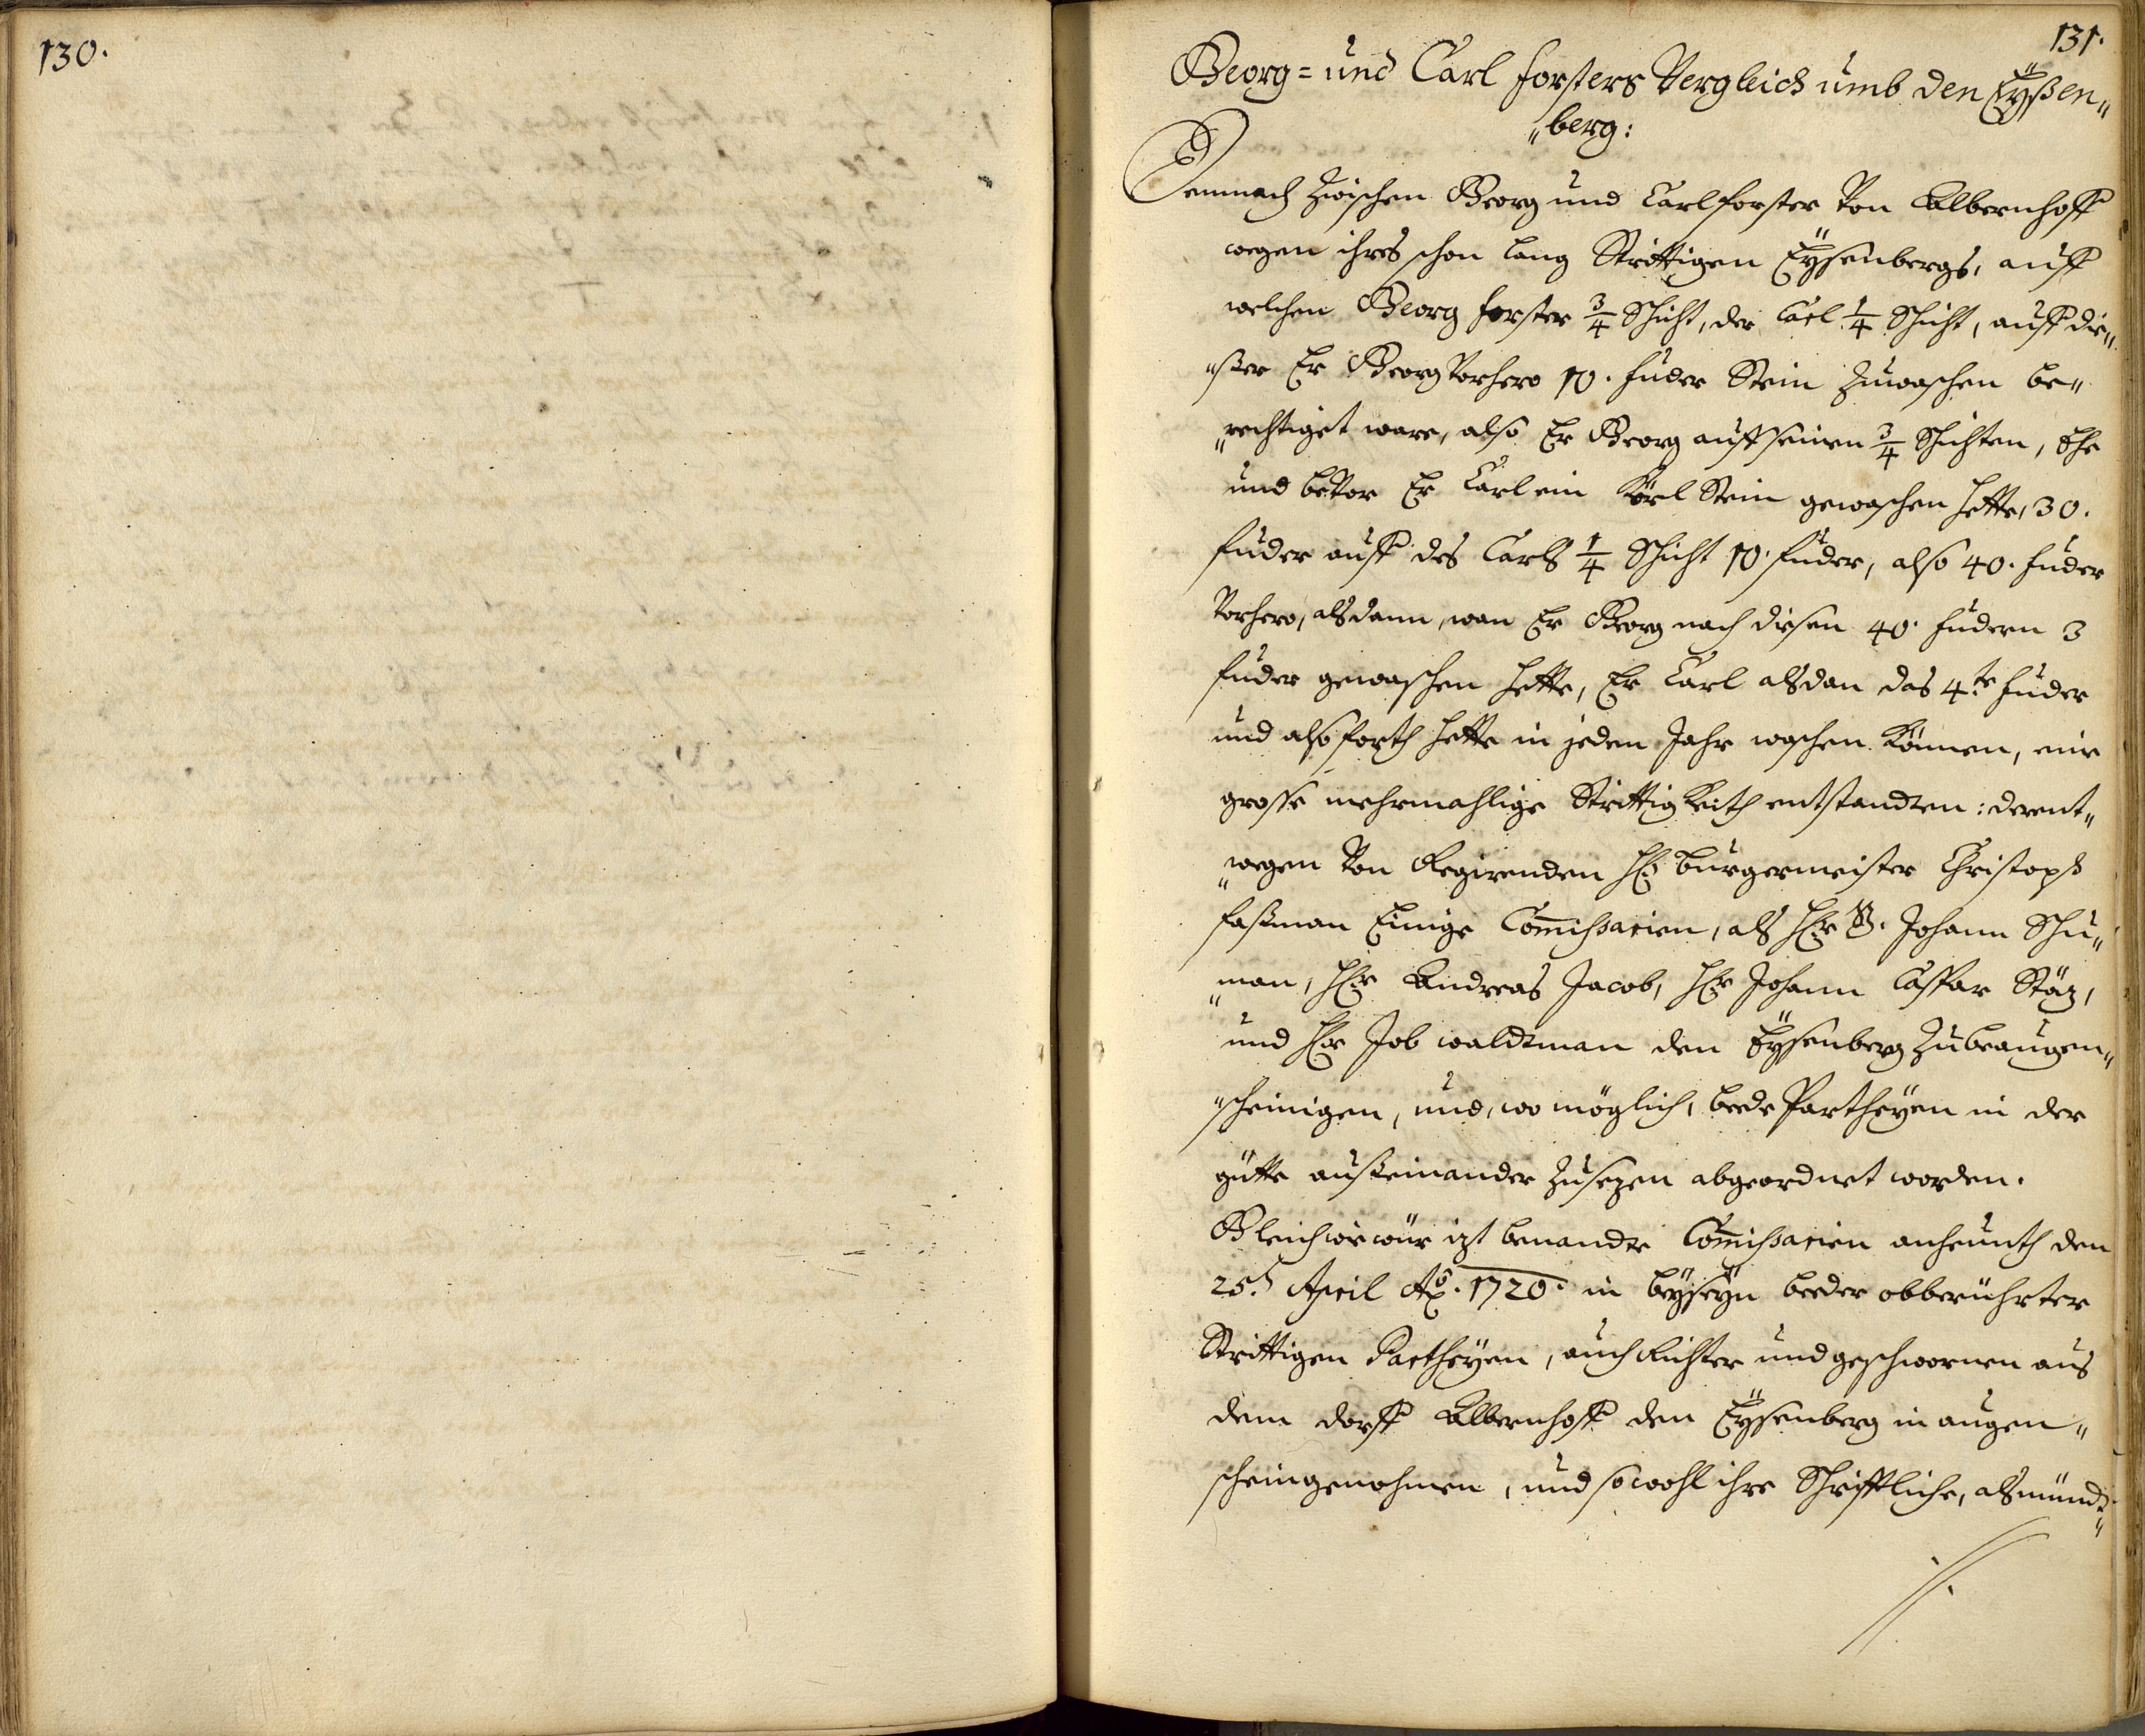 130.
131.
Georg= und Carl Forsters Vergleich umb den Eÿßen„
„berg:
Demnach zwischen Georg und Carl Forster von Albernhoff
wegen ihres schon lang Strittigen Eÿsenbergs, auff
welchen Georg Forster 3/4 Schicht, der Carl 1/4 Schicht, auff die„
„ßer Er Georg vorhero 10. Fuder Stein zuwaschen be„
„rechtiget ware, also Er Georg auff seinen 3/4 Schichten, Ehe
und bevor Er Carl ein Körl Stein gewaschen hette, 30.
Fuder auff des Carls 1/4 Schicht 10. Fuder, also 40. Fuder
vorhero, alsdann, wan Er Georg nach disen 40. Fudern 3
Fuder gewaschen hette, Er Carl alsdan das 4te Fuder
und also forth hette in jeden Jahr waschen können, eine
grosse mehrmahlige Strittigkeith entstandten: derent„
„wegen von Regirenden H: Burgermeister Christoph
Faßman Einige Com̄ißarien, als H:r G. Johann Schu„
„man, H:r Andreas Jacob, H:r Johann Caspar Stäz,
und H:r Job Waldtman den Eÿsenberg zubeaugen„
„scheinigen, und, wo möglich, beede Partheÿen in der
gütte außeinander zusezen abgeordnet worden.
Gleichwie wür izt benandte Com̄ißarien anheunth den
25.t April Ao. 1720. in beÿseÿn beeder obberührter
Strittigen Partheÿen, auch Richter und geschwornen aus
dem dorff Albernhoff den Eÿsenberg in augen„
schein genohmen, und sowohl ihre Schrifftliche, als mündt„